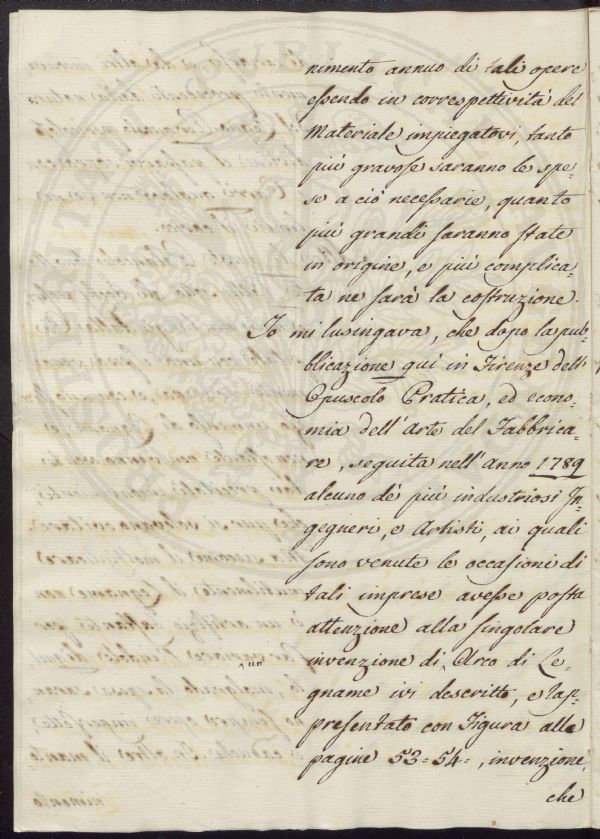 nimento annuo di tali opere
essendo in correspettività del
Materiale impiegatovi, tanto
più gravose saranno le spe=
se a ciò necessarie, quanto
più grandi saranno state
in origine, e più complica=
ta ne sarà la costruzione.
Io mi lusingava, che dopo la pub=
blicazione qui in Firenze dell'
Opuscolo Pratica, ed econo=
mia dell'Arte del Fabbrica=
re, seguita nell'anno 1789
alcuno de' più industriosi In=
gegneri, e Artisti, ai quali
sono venute le occasioni di
tali imprese avesse posta
attenzione alla singolare
invenzione di un Arco di Le=
gname ivi descritto, e rap=
presentato con Figura alle
pagine 53=54=, invenzione,
che